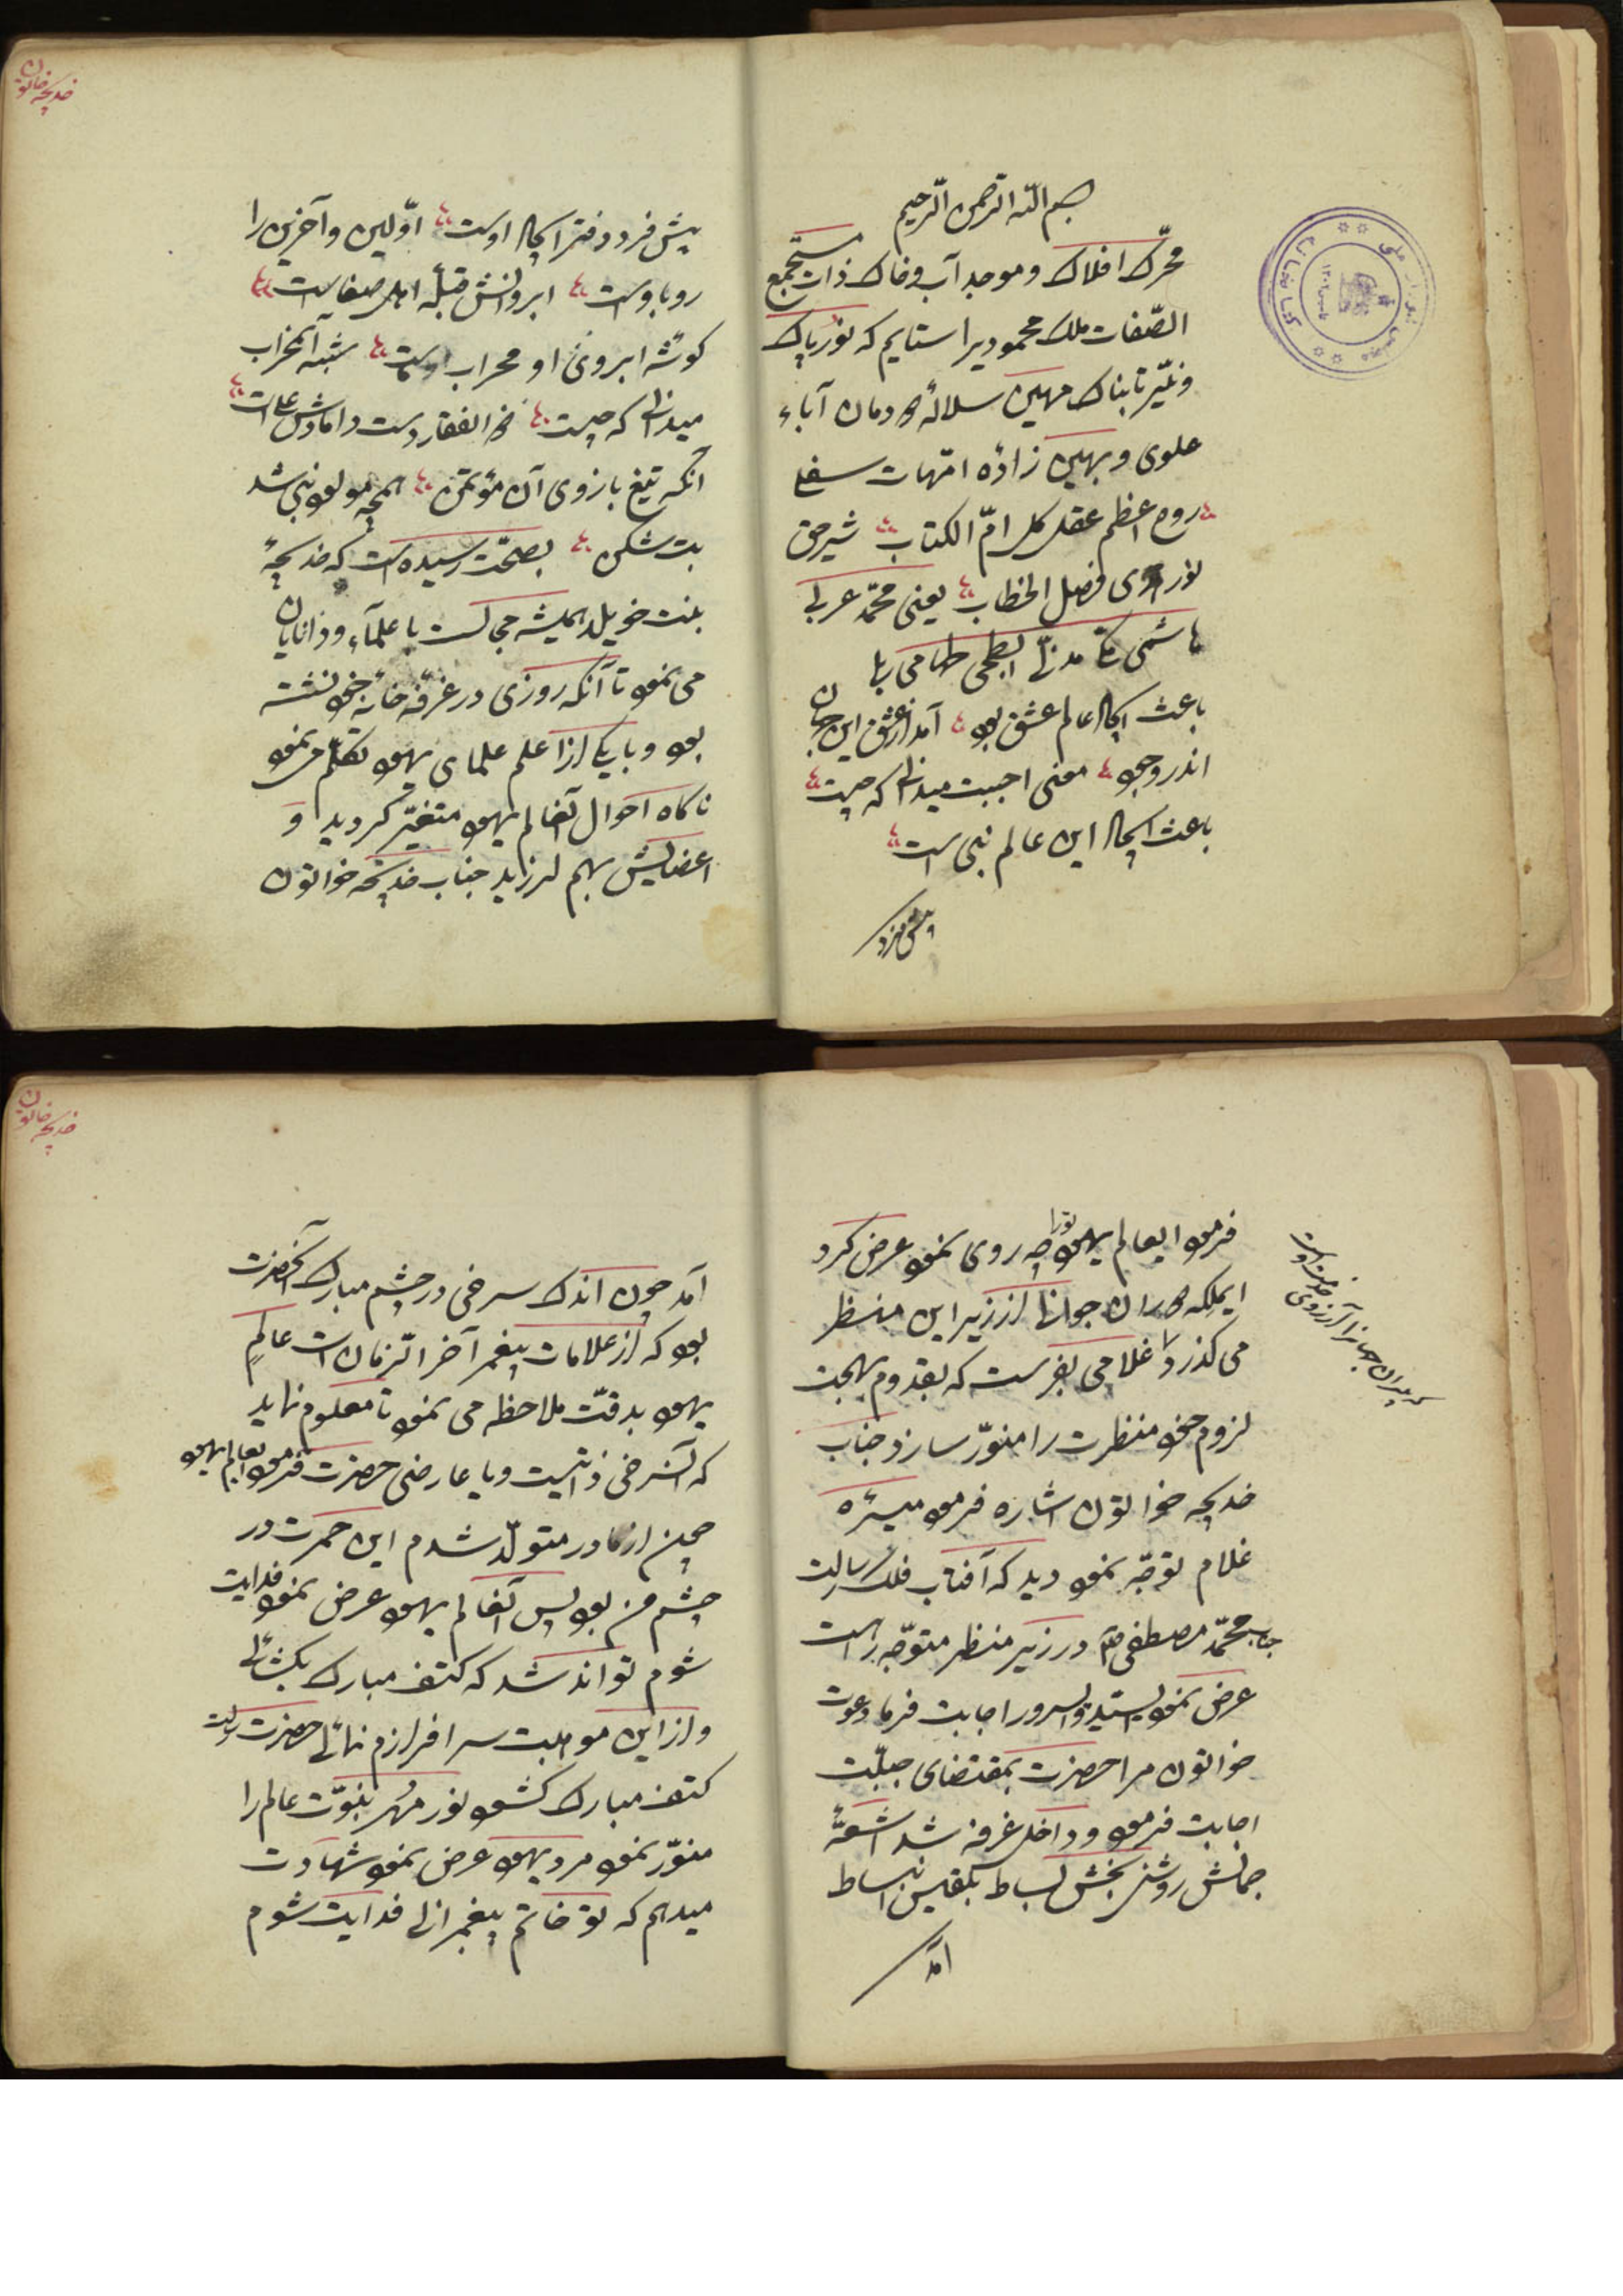 بسم اللّه الرّحمن الرّحیم
محرّک افلاک و موجد آب و خاک ذات مستجمع
الصّفات ملک محمودیرا ستایم که نور پاک
و نیّر تابناک مهین سلالهٔ دودمان آباء
علوی و بهین زادهٔ امّهات سفلی
روح اعظم عقل کل امّ الکتاب شیر حق
نور فصل الخطاب یعنی محمّد عربی
هاشمی مکی مدنی ابطحی
باعث ایجاد عالم عشق بود آمد از عشق این جهان
اندر وجود معنی احببت میدانی که چیست
باعث ایجاد این عالم نبی است
پیش فرد
خدیجه خاتون
پیش فرد دفتر ایجاد اوست اوّلین و آخرین را
رو باوست ابروانش قبلهٔ اهل صفاست
کوشهٔ ابروی او محراب ماست شبه آنمحراب
میدانی که چیست ذو الفقار دست دامادش علیست
آنکه تیغ بازوی آن مؤتمن همچو مولود نبی شد
بت شکن بصحّت رسیده است که خدیجهٔ
بنت خویلد همیشه مجالست با علمآء و دانایان
می نمود تا آنکه روزی در غرفهٔ خانهٔ خود نشسته
بود و با یکی از اعلم علمای یهود تکلّم می نمود
ناکاه احوال آنعالم یهود متغیّر کردید و
اعضایش بهم لرزید جناب خدیجه خواتون
فرمود ایعالم یهود تورا چه روی نمود عرض کرد
ایملکه دوران جوانی از زیر این منظر
می کذرد غلامی بفرست که بقدوم بهجت
لزوم خود منظرت را منوّر سازد جناب
خدیجه خواتون اشاره فرمود میسره
غلام توجّه نمود دید که آفتاب فلک رسالت
جناب محمّد مصطفی ص در زیر منظر متوجّه راهست
عرض نمود یا سیّد و السرور اجابت فرما دعوت
خواتون مرا حضرت بمقتضای جبلّت
اجابت فرمود و داخل غرفه شد اشعّهٔ
جمالش روشنی بخش بساط بلقیس انبساط
آمد
خدیجه خاتون
آمد چون اندک سرخی در چشم مبارک آنحضرت
بود که از علامات پیغمبر آخر الزّمان است عالمِ
یهود بدقّت ملاحظه می نمود تا معلوم نماید
که آنسرخی ذاتیست و یا عارضی حضرت فرمود ایعالم یهود
چون از مادر متولّد شدم این حمرت در
چشم من بود پس آنعالم یهود عرض نمود فدایت
شوم تواند شد که کتف مبارک بکشائی
و از این موهبت سرافرازم نمائی حضرت رسالت
کتف مبارک کشود نور مُهر نبوّت عالم را
منوّر نمود مرد یهود عرض نمود شهادت
میدهم که تو خاتم پیغمبرانی فدایت شوم